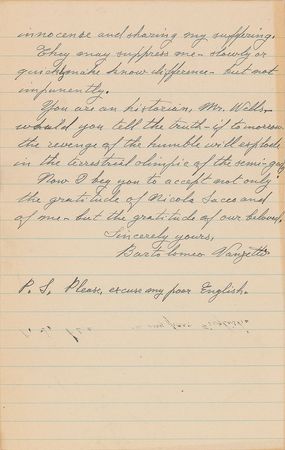 innocense and sharing my suffering.
They may suppress me - slowly or
quickly make know difference - but not
impunently.
You are an historian, Mr. Wells -
would you tell the truth - if to morrow
the revenge of the humble will explode
in the terestrial olimpic of the semi-god
Now I beg you to accept not only
the gratitude of Nicola Sacco and
of me - but the gratitude of our beloved.
Sincerely yours,
Bartolomeo Vanzetti
P. S. Please, excuse my poor English.